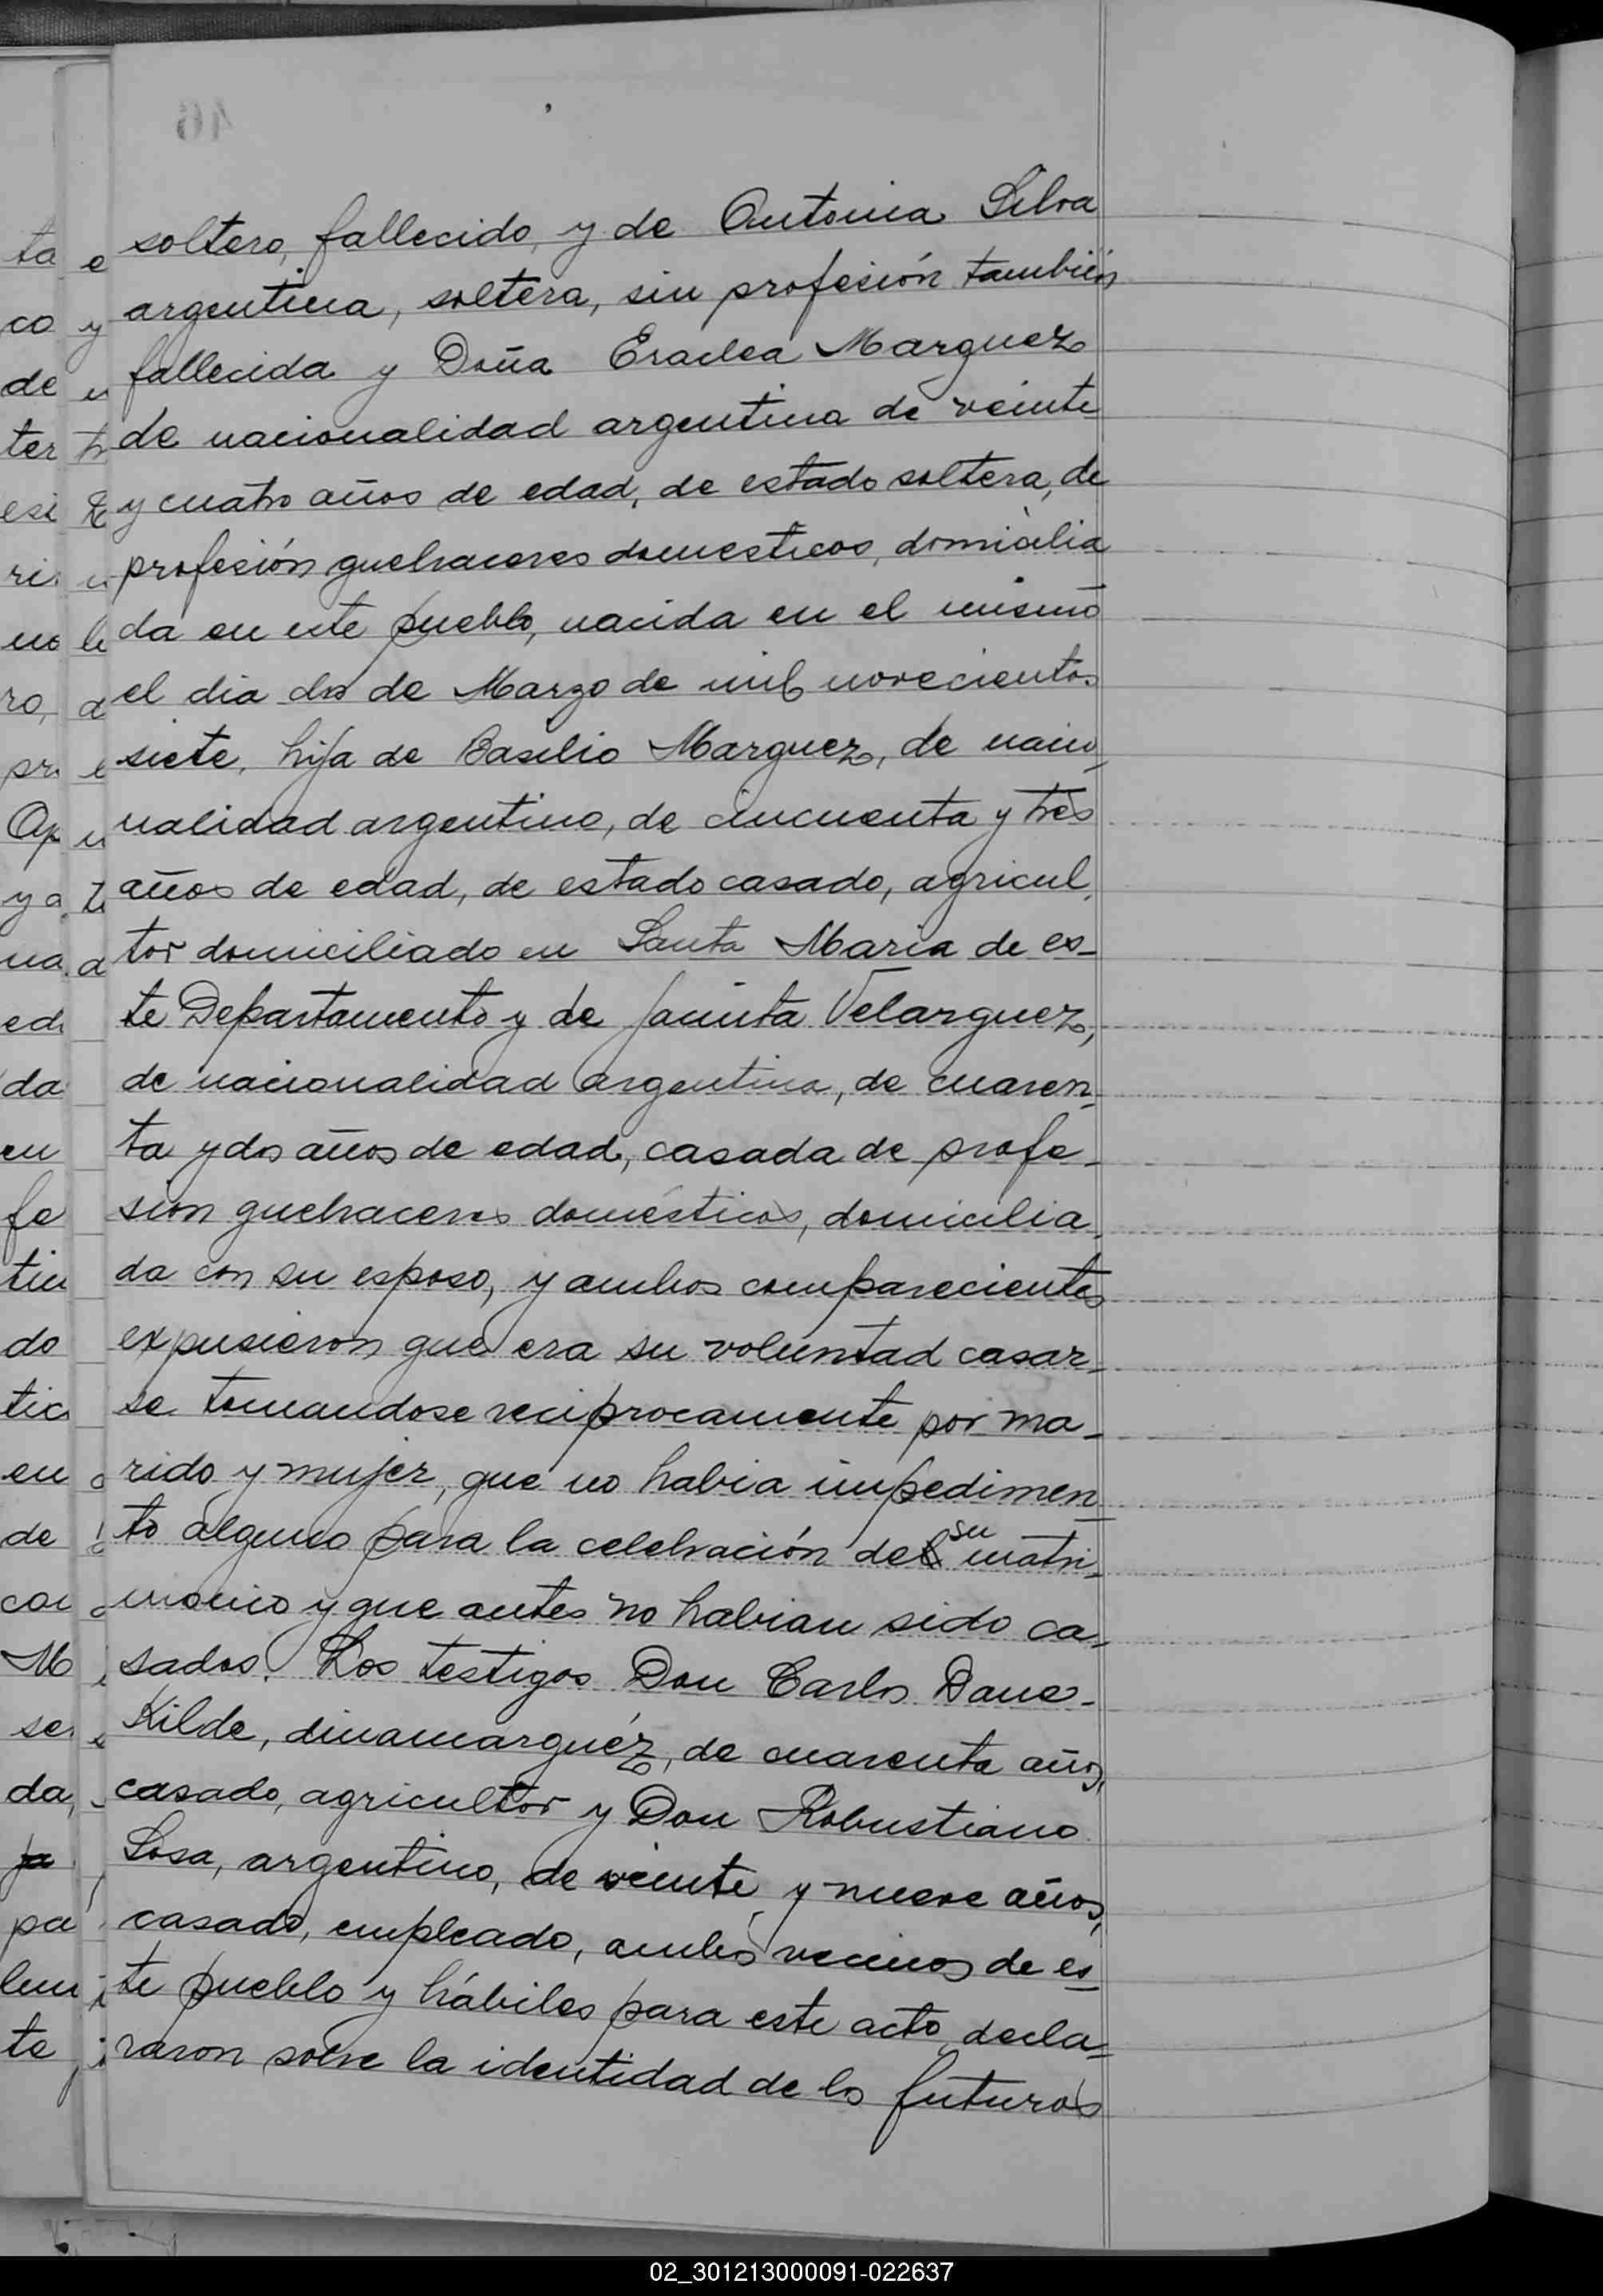 soltero, fallecido, y de Antonia Silva
argentina, soltera, sin profesión también
fallecida y Doña Eraclea Marquez
de nacionalidad argentina de veinte
y cuatro años de edad, de estado soltera, de
profesión quehaceres domesticos, domicilia
da en este pueblo, nacida en el mismo
el dia dos de Marzo de mil novecientos
siete, hija de Basilio Marquez, de nacio-
nalidad argentino, de cincuenta y tres
años de edad, de estado casado, agricul-
tor domiciliado en Santa Maria de es-
te Departamento y de Jacinta Velarquez,
de nacionalidad argentina, de cuaren-
ta y dos años de edad, casada de profe-
sion quehaceres domésticos, domicilia-
da con su esposo, y ambos comparecientes
expusieron que era su voluntad casar-
se tomandose reciprocamente por ma-
rido y mujer, que no habia impedimen-
to alguno para la celebración del su matri-
monio y que antes no habian sido ca-
sados. Los testigos Don Carlos Dane-
Kilde, dinamarquéz, de cuarenta años,
casado, agricultor y Don Robustiano
Sosa, argentino, de veinte y nueve años,
casado, empleado, ambos vecinos de es-
te pueblo y hábiles para este acto, decla-
raron sobre la identidad de los futuros
02_301213000091-022637